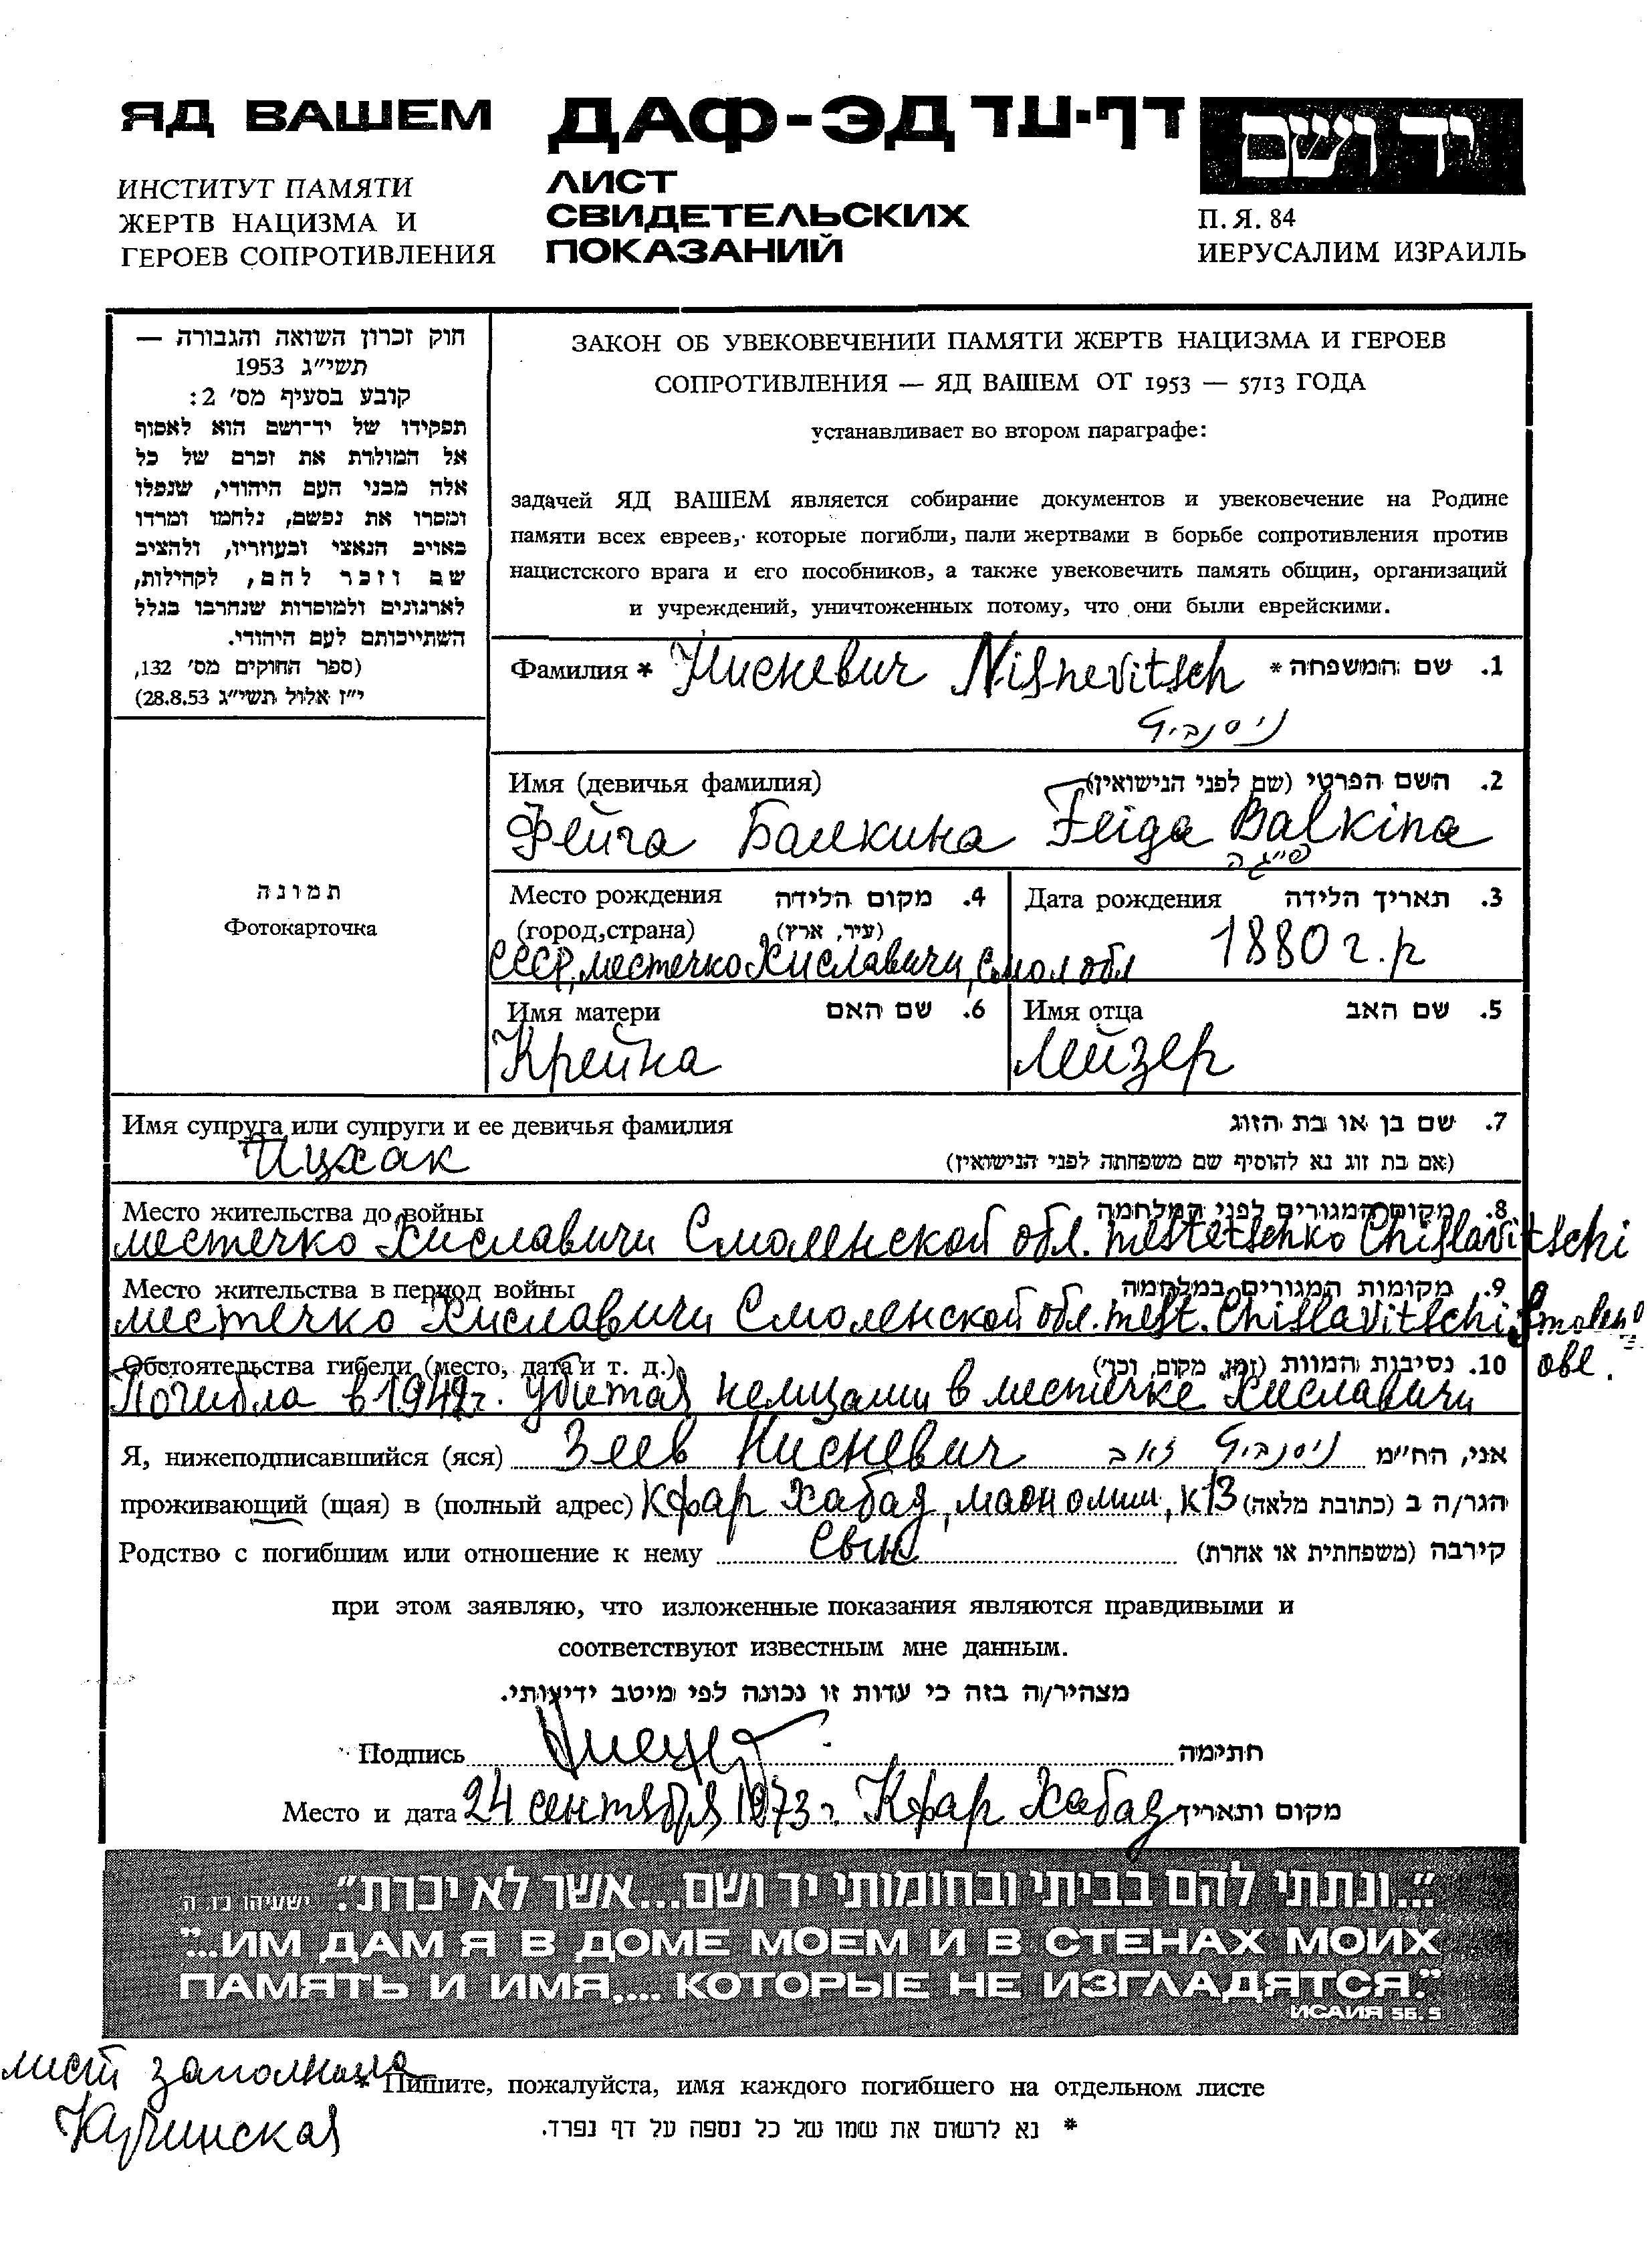 ЯД ВАШЕМ
ИНСТИТУТ ПАМЯТИ
ЖЕРТВ НАЦИЗМА И
ГЕРОЕВ СОПРОТИВЛЕНИЯ
ДАФ-ЭД דף-עד
ЛИСТ
СВИДЕТЕЛЬСКИХ
ПОКАЗАНИЙ
יד ושם
П. Я. 84
ИЕРУСАЛИМ ИЗРАИЛЬ
חוק זכרון השואה והגבורה —
תשי״ג 1953
קובע בסעיף מס׳ 2:
תפקידו של יד־ושם הוא לאסוף
אל המולדת את זכרם של כל
אלה מבני העם היהודי, שנפלו
ומסרו את נפשם, נלחמו ומרדו
באויב הנאצי ובעוזריו, ולהציב
שם וזכר להם, לקהילות,
לארגונים ולמוסדות שנחרבו בגלל
השתייכותם לעם היהודי.
(ספר החוקים מס׳ 132,
י״ז אלול תשי״ג 28.8.53)
תמונה
Фотокарточка
ЗАКОН ОБ УВЕКОВЕЧЕНИИ ПАМЯТИ ЖЕРТВ НАЦИЗМА И ГЕРОЕВ
СОПРОТИВЛЕНИЯ — ЯД ВАШЕМ ОТ 1953 — 5713 ГОДА
устанавливает во втором параграфе:
задачей ЯД ВАШЕМ является собирание документов и увековечение на Родине
памяти всех евреев, которые погибли, пали жертвами в борьбе сопротивления против
нацистского врага и его пособников, а также увековечить память общин, организаций
и учреждений, уничтоженных потому, что они были еврейскими.
Фамилия * Нисневич Nisnevitsch 1. שם המשפחה *
ניסנביץ
Имя (девичья фамилия) 2. השם הפרטי (שם לפני הנישואין)
Фейга Балкина Feiga Balkina
פייגה
Место рождения 4. מקום הלידה
(город,страна) (עיר, ארץ)
СССР, местечко Хиславичи, Смол обл
Дата рождения 3. תאריך הלידה
1880 г. р
Имя матери 6. שם האם
Крейна
Имя отца 5. שם האב
Лейзер
Имя супруга или супруги и ее девичья фамилия 7. שם בן או בת הזוג
Ицхак (אם בת זוג נא להוסיף שם משפחתה לפני הנישואין)
Место жительства до войны 8. מקום המגורים לפני המלחמה
местечко Хиславичи Смоленской обл. mestetschko Chislavitschi
Место жительства в период войны 9. מקומות המגורים במלחמה
местечко Хиславичи Смоленской обл. mest. Chislavitschi Smolens
obl.
Обстоятельства гибели (место, дата и т. д.) 10. נסיבות המוות (זמן, מקום, וכר׳)
Погибла в 1942г. убитая немцами в местечке Хиславичи
Я, нижеподписавшийся (яся) Зеев Нисневич ניסנביץ זאב אני, הח״מ
проживающий (щая) в (полный адрес) Кфар Хабад, маон олим, к 13 הגר/ה ב (כתובת מלאה)
Родство с погибшим или отношение к нему Сын קירבה (משפחתית או אחרת)
при этом заявляю, что изложенные показания являются правдивыми и
соответствуют известным мне данным.
מצהיר/ה בזה כי עדות זו נכונה לפי מיטב ידיעותי.
Подпись חתימה
Место и дата 24 сентября 1973 г. Кфар Хабад מקום ותאריך
״...ונתתי להם בביתי ובחומותי יד ושם...אשר לא יכרת״. ישעיהו נו. ה
"...ИМ ДАМ Я В ДОМЕ МОЕМ И В СТЕНАХ МОИХ
ПАМЯТЬ И ИМЯ,... КОТОРЫЕ НЕ ИЗГЛАДЯТСЯ."
ИСАИЯ 56. 5
лист заполнила
* Пишите, пожалуйста, имя каждого погибшего на отдельном листе
* נא לרשום את שמו של כל נספה על דף נפרד.